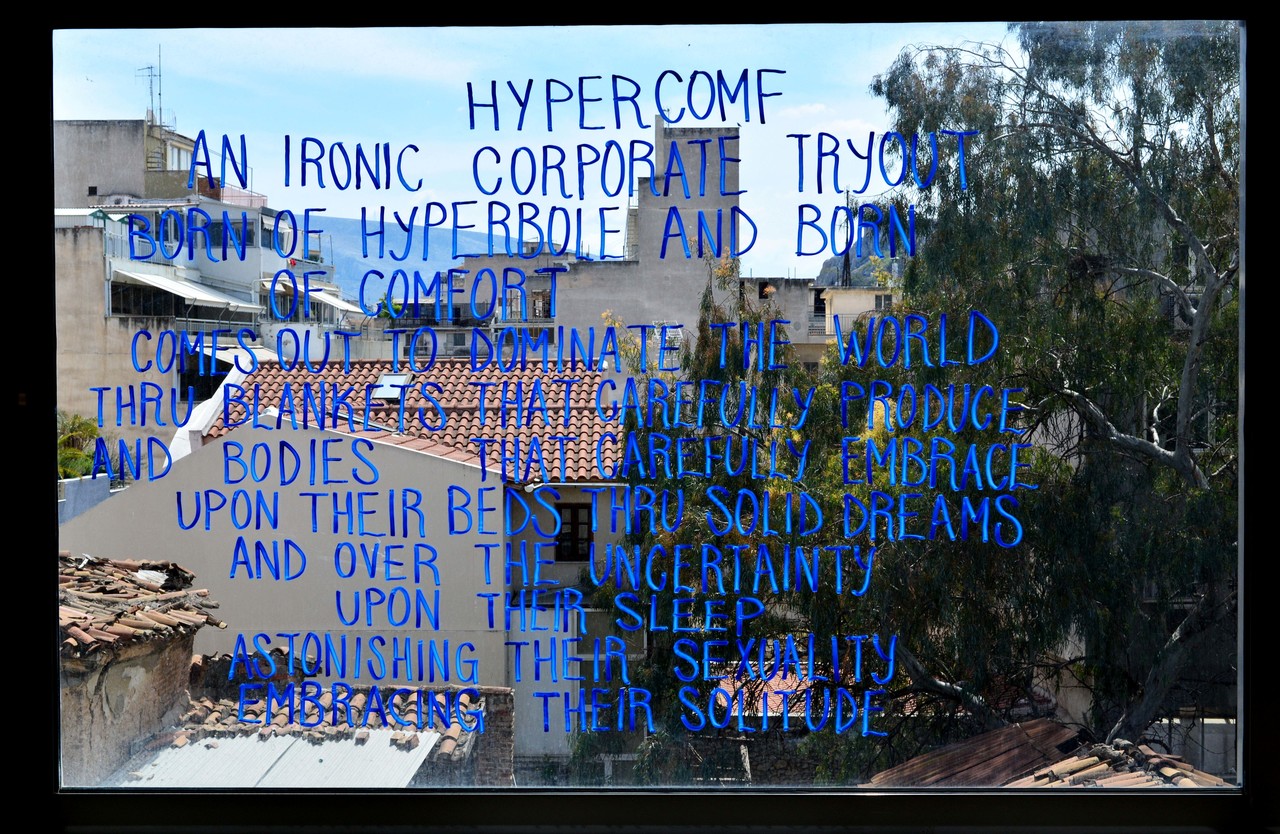 HYPERCOMF
AN IRONIC CORPORATE TRYOUT
BORN OF HYPERBOLE AND BORN
OF COMFORT
COMES OUT TO DOMINATE THE WORLD
THRU BLANKETS THAT CAREFULLY PRODUCE
AND BODIES THAT CAREFULLY EMBRACE
UPON THEIR BEDS THRU SOLID DREAMS
AND OVER THE UNCERTAINTY
UPON THEIR SLEEP
ASTONISHING THEIR SEXUALITY
EMBRACING THEIR SOLITUDE